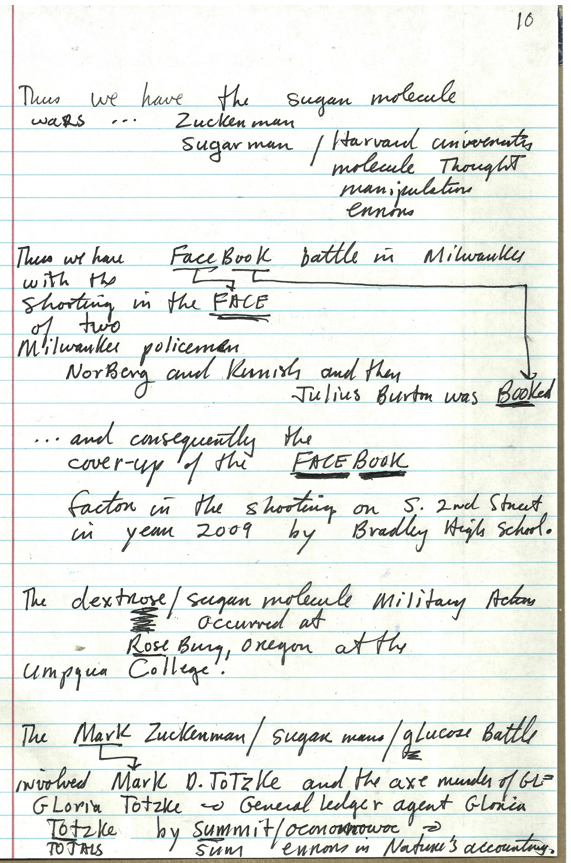 10
Thus we have the sugar molecule
wars ... Zuckerman
Sugarman / Harvard universities
molecule Thought
manipulation
errors
Thus we have FaceBook battle in Milwaukee
with the
shooting in the FACE
of two
Milwaukee policeman
NorBerg and Kunish and then
Julius Burton was BOOKed
... and consequently the
cover-up of the FACEBOOK
factor in the shooting on S. 2nd Street
in year 2009 by Bradley High School.
The dextrose/sugar molecule Military Action
occurred at
Rose Burg, Oregon at the
Umpqua College.
The Mark Zuckerman/sugar mans/gLucose Battle
involved Mark D. ToTzke and the axe murder of GLF
Gloria Totzke → General ledger agent Gloria
Totzke by summit/oconomowoc →
TOTALS sum errors in Nature's accounting.